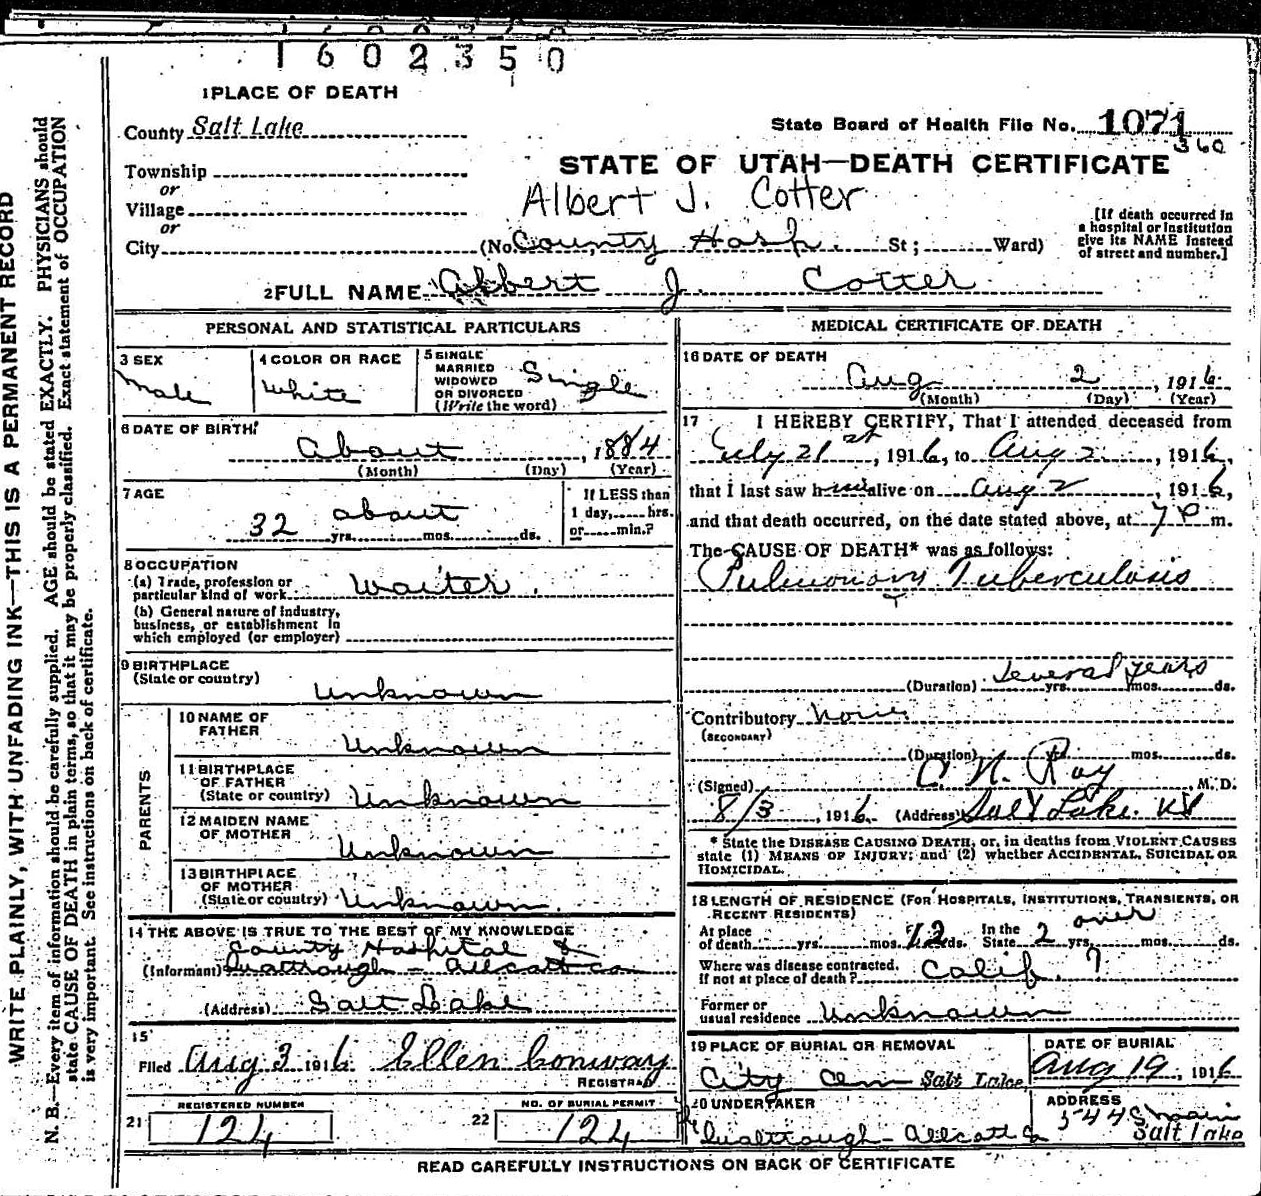 1602350
1 PLACE OF DEATH
County Salt Lake
State Board of Health File No. 1071
360
Township
or
Village
or
City (No. County Hosp. St; Ward)
STATE OF UTAH—DEATH CERTIFICATE
Albert J. Cotter
[If death occurred in
a hospital or institution
give its NAME instead
of street and number.]
2 FULL NAME Albert J. Cotter
PERSONAL AND STATISTICAL PARTICULARS
3 SEX
Male
4 COLOR OR RACE
White
5 SINGLE
MARRIED
WIDOWED
OR DIVORCED
(Write the word)
Single
6 DATE OF BIRTH
About , 1884
(Month) (Day) (Year)
7 AGE
about
32 yrs. mos. ds.
If LESS than
1 day, hrs.
or min.?
8 OCCUPATION
(a) Trade, profession or
particular kind of work Waiter.
(b) General nature of industry,
business, or establishment in
which employed (or employer)
9 BIRTHPLACE
(State or country)
Unknown
PARENTS
10 NAME OF
FATHER
Unknown
11 BIRTHPLACE
OF FATHER
(State or country) Unknown
12 MAIDEN NAME
OF MOTHER
Unknown
13 BIRTHPLACE
OF MOTHER
(State or country) Unknown.
14 THE ABOVE IS TRUE TO THE BEST OF MY KNOWLEDGE
County Hospital &
(Informant) Gualtrough - Allcott co
(Address) Salt Lake
15
Filed Aug 3 1916 Ellen Conway
REGISTRAR
21 REGISTERED NUMBER
124
22 NO. OF BURIAL PERMIT
124
MEDICAL CERTIFICATE OF DEATH
16 DATE OF DEATH
Aug 2 , 1916
(Month) (Day) (Year)
17 I HEREBY CERTIFY, That I attended deceased from
July 21st , 1916, to Aug 2 , 1916,
that I last saw him alive on Aug 2 , 1916,
and that death occurred, on the date stated above, at 7 P m.
The CAUSE OF DEATH* was as follows:
Pulmonary Tuberculosis
several years
(Duration) yrs. mos. ds.
Contributory None
(SECONDARY)
(Duration) yrs. mos. ds.
(Signed) C. N. Ray M. D.
8/3 , 1916. (Address) Salt Lake.
* State the DISEASE CAUSING DEATH, or, in deaths from VIOLENT CAUSES
state (1) MEANS OF INJURY; and (2) whether ACCIDENTAL, SUICIDAL OR
HOMICIDAL.
18 LENGTH OF RESIDENCE (FOR HOSPITALS, INSTITUTIONS, TRANSIENTS, OR
RECENT RESIDENTS)
over
At place
of death yrs. mos. 12 ds. In the
State 2 yrs. mos. ds.
Where was disease contracted,
if not at place of death? Calif. ?
Former or
usual residence Unknown
19 PLACE OF BURIAL OR REMOVAL
City Cem Salt Lake
DATE OF BURIAL
Aug 19 , 1916
20 UNDERTAKER
Gualtrough - Allcott Co
ADDRESS
544 S Main
Salt Lake
READ CAREFULLY INSTRUCTIONS ON BACK OF CERTIFICATE
WRITE PLAINLY, WITH UNFADING INK—THIS IS A PERMANENT RECORD
N. B.—Every item of information should be carefully supplied. AGE should be stated EXACTLY. PHYSICIANS should
state CAUSE OF DEATH in plain terms, so that it may be properly classified. Exact statement of OCCUPATION
is very important. See instructions on back of certificate.